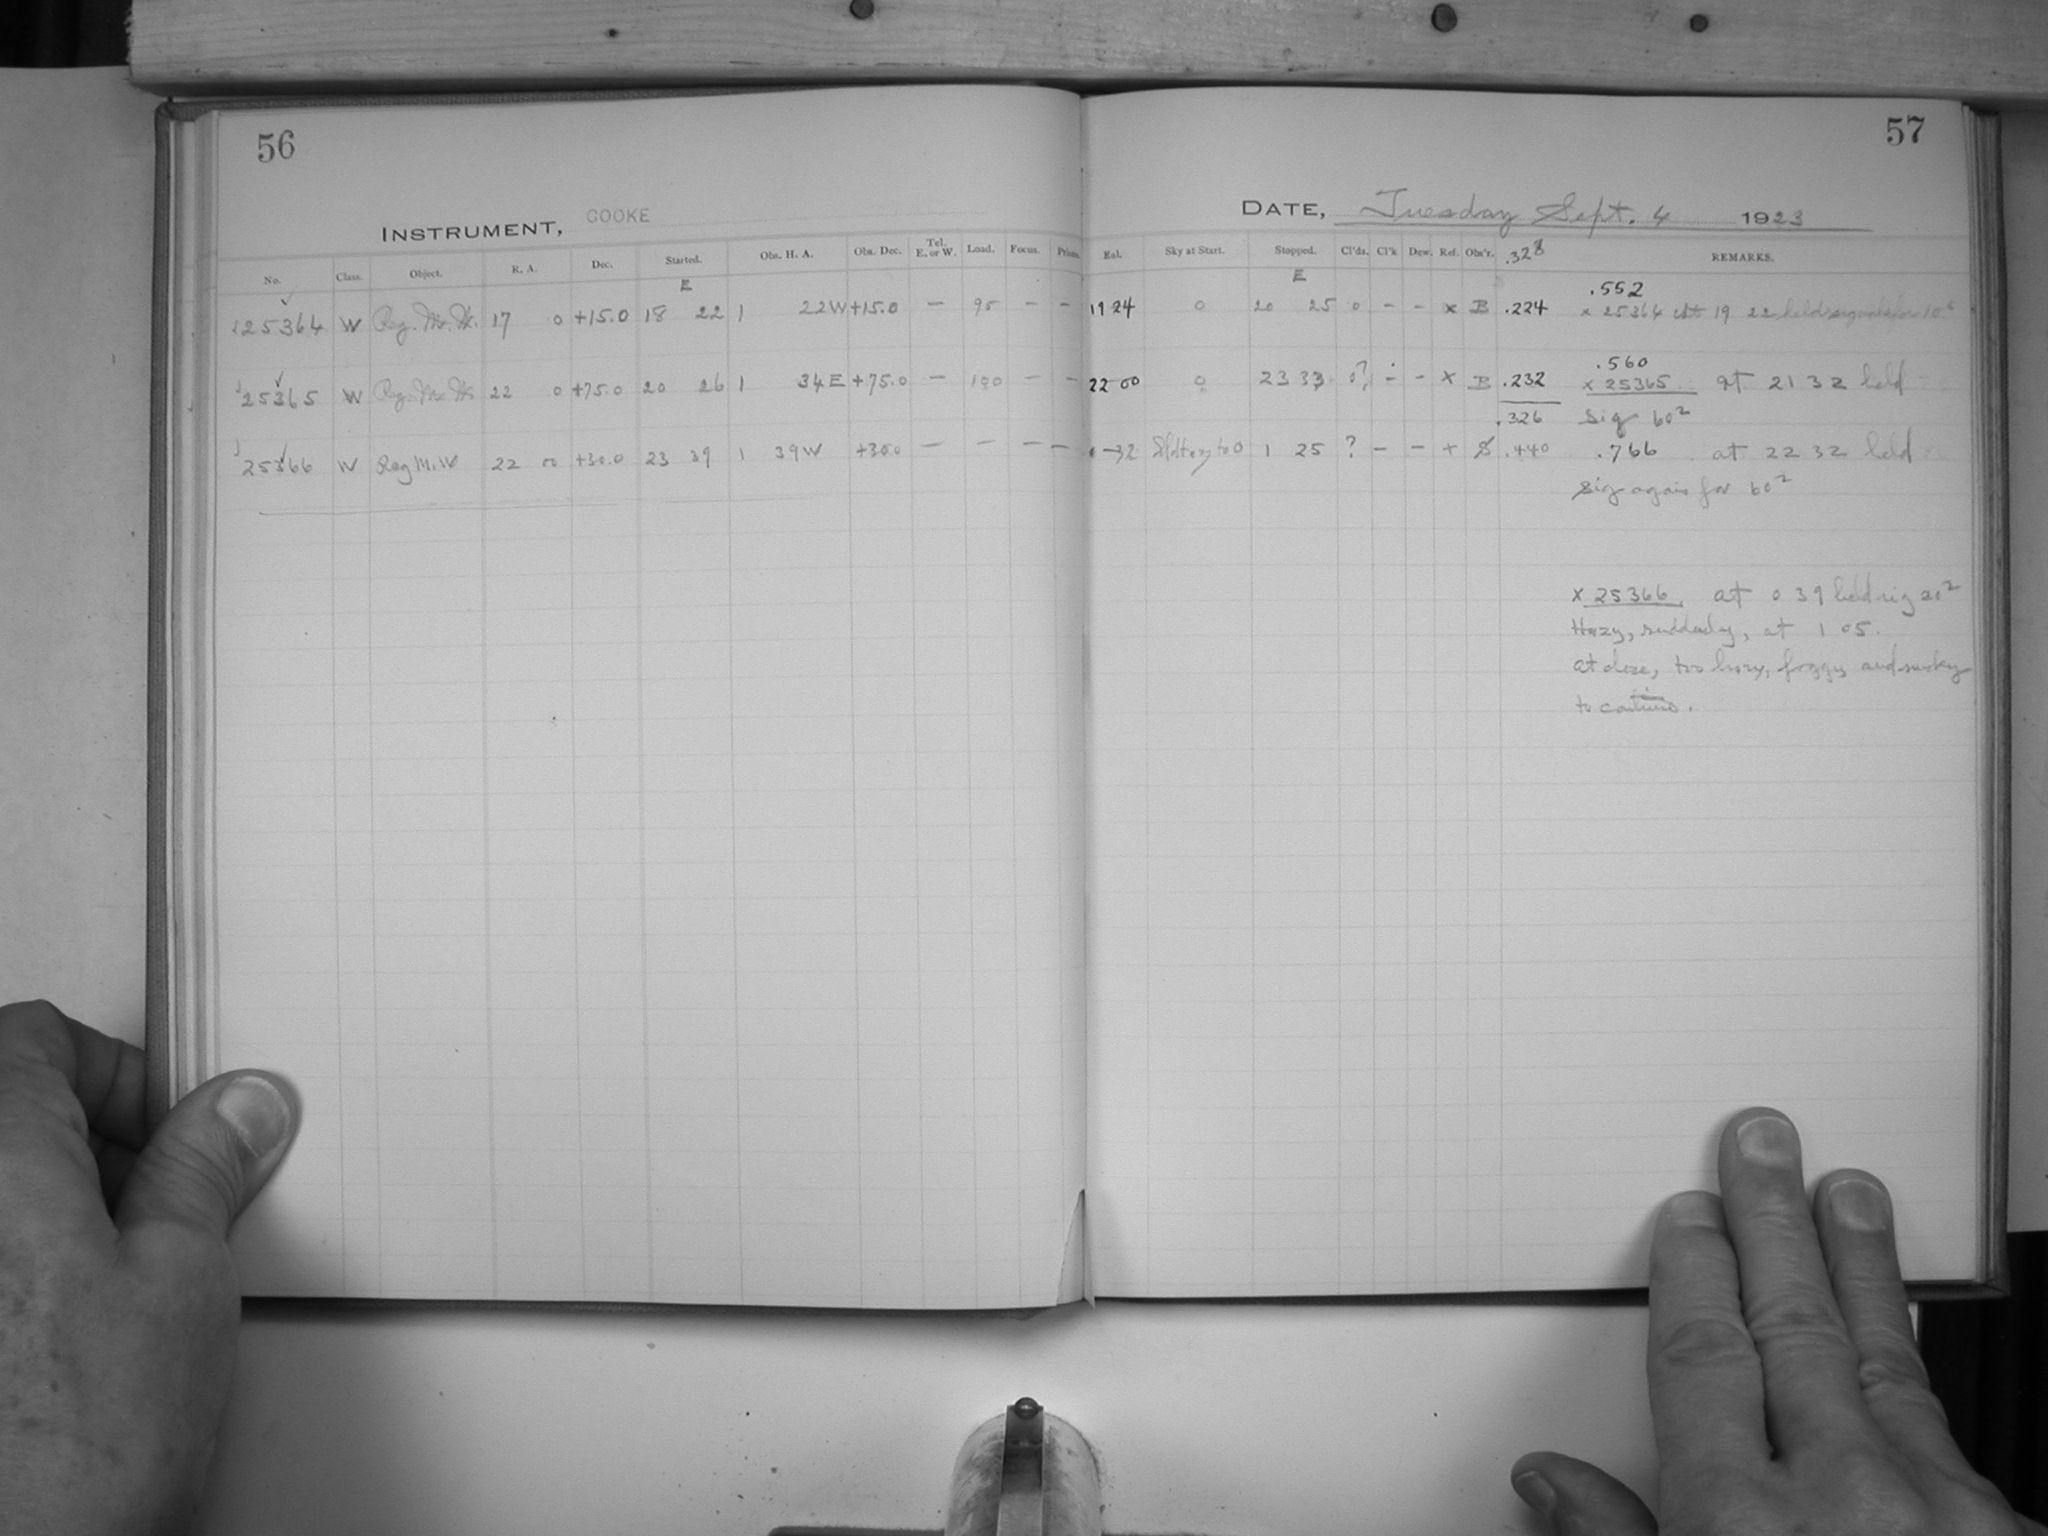 56
INSTRUMENT, COOKE
No. Class. Object. R. A. Dec. Started. Obs. H. A. Obs. Dec. Tel. E. or W. Load. Focus. Prisms.
E
25364 W Reg. M. W. 17 0 +15.0 18 22 1 22 W +15.0 — 95 — —
25365 W Reg. M. W. 22 0 +75.0 20 26 1 34 E +75.0 — 100 — —
25366 W Reg M. W 22 00 +30.0 23 39 1 39 W +30.0 — — — —
57
DATE, Tuesday Sept. 4 1923
Hal. Sky at Start. Stopped. Cl'ds. Cl'k Dew. Ref. Obs'r. .328 REMARKS.
E
.552
19 24 0 20 25 0 — — x B .224 x 25364 At 19 22 held signals for 10
.560
22 00 0 23 33 0? — — x B .232 x 25365 at 21 32 held
.326 sig 60²
0 32 to 0 1 25 ? — — + .440 .766 at 22 32 held
sig again for 60²
x 25366. at 0 39 held sig 20²
Hazy, suddenly, at 1 05.
at close, too hazy, foggy and
to continue.